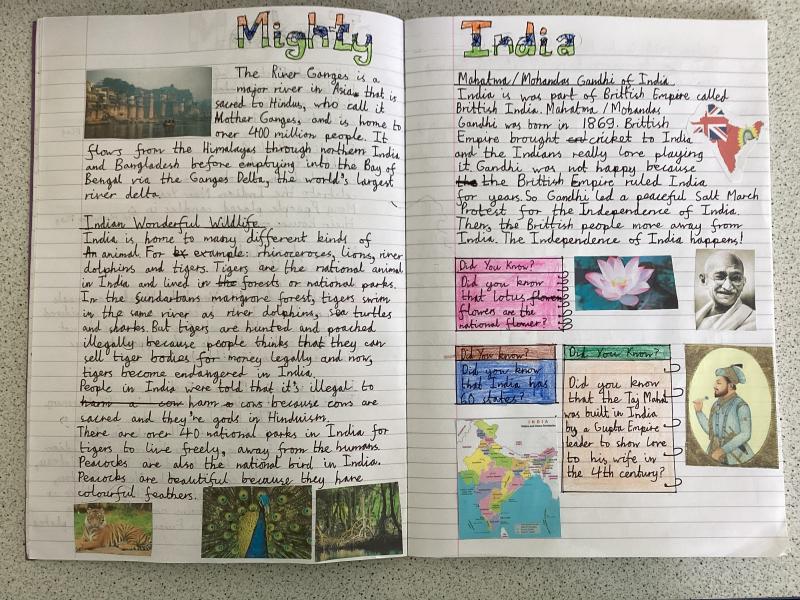 Mighty
The River Ganges is a
major river in Asia that is
sacred to Hindus, who call it
Mother Ganges, and is home to
over 400 million people. It
flows from the Himalayas through northern India
and Bangladesh before emptying into the Bay of
Bengal via the Ganges Delta, the world's largest
river delta.
Indian Wonderful Wildlife
India is home to many different kinds of
An animal. For ex example: rhinoceroses, lions, river
dolphins and tigers. Tigers are the national animal
in India and lived in the forests or national parks.
In the Sundarbans mangrove forest, tigers swim
in the same river as river dolphins, sea turtles
and sharks. But tigers are hunted and poached
illegally because people thinks that they can
sell tiger bodies for money legally and now,
tigers become endangered in India.
People in India were told that it's illegal to
harm a cow harm a cows because cows are
sacred and they're gods in Hinduism.
There are over 40 national parks in India for
tigers to live freely, away from the humans.
Peacocks are also the national bird in India.
Peacocks are beautiful because they have
colourful feathers.
India
Mahatma / Mohandas Gandhi of India
India is was part of Brittish Empire called
Brittish India. Mahatma / Mohandas
Gandhi was born in 1869. Brittish
Empire brought cricket to India
and the Indians really love playing
it. Gandhi was not happy because
the the Brittish Empire ruled India
for years. So Gandhi led a peaceful Salt March
Protest for the Independence of India.
Then, the Brittish people move away from
India. The Independence of India happens!
Did You Know?
Did you know
that lotus flower
flowers are the
national flower?
Did You Know?
Did you know
that India has
60 states?
Did You Know?
Did you know
that the Taj Mahal
was built in India
by a Gupta Empire
leader to show love
to his wife in
the 4th century?
INDIA